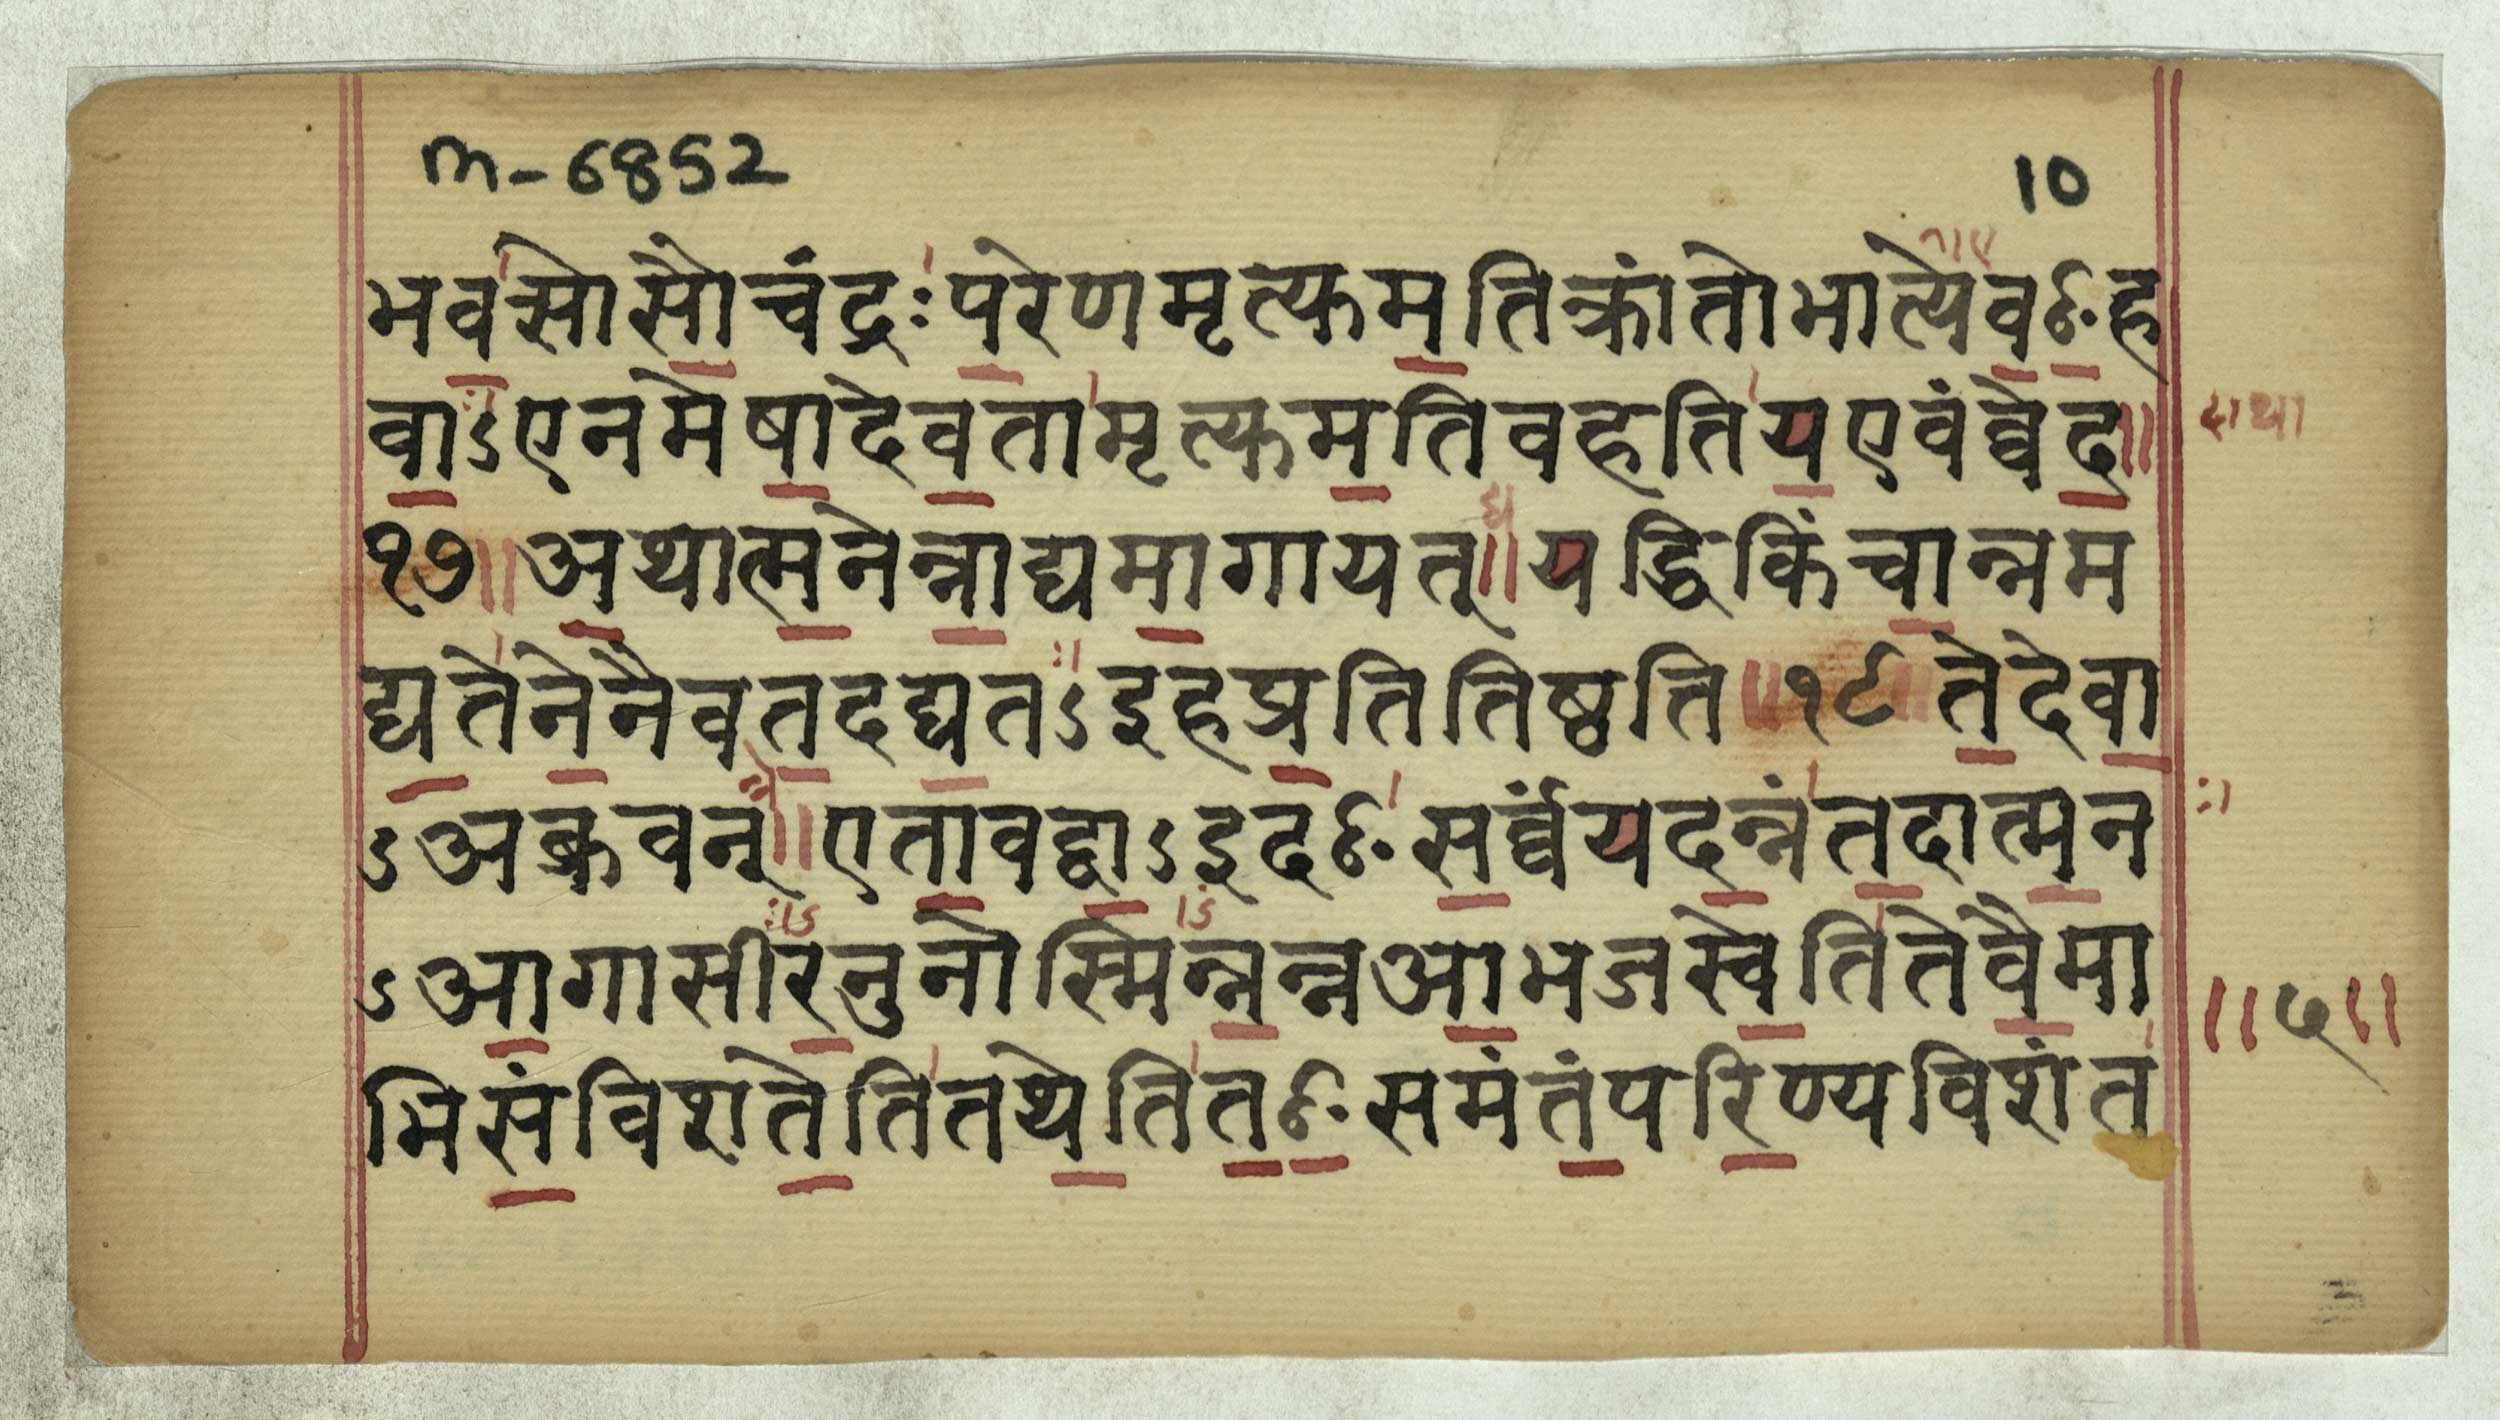 m-6852 10
भवत्सोसौचंद्रः परेणमृत्युमतिक्रांतोभात्येवᳪह
वाऽएनमेषादेवतामृत्युमतिवहतियएवंव्वेद॥
१७॥ अथात्मनेन्नाद्यमागायत्॥ यद्धिकिंचान्नम
द्यतेनेनैवतदद्यतऽइहप्रतितिष्ठति॥१८॥ तेदेवा
ऽअब्रुवन्॥ एतावद्वाऽइदᳪसर्व्वंयदन्नंतदात्मन
ऽआगासीरनुनोस्मिन्नन्नआभजस्वेतितेवैमा
॥७॥
भिसंविशतेतितथेतितᳪसमंतंपरिण्यविशंत